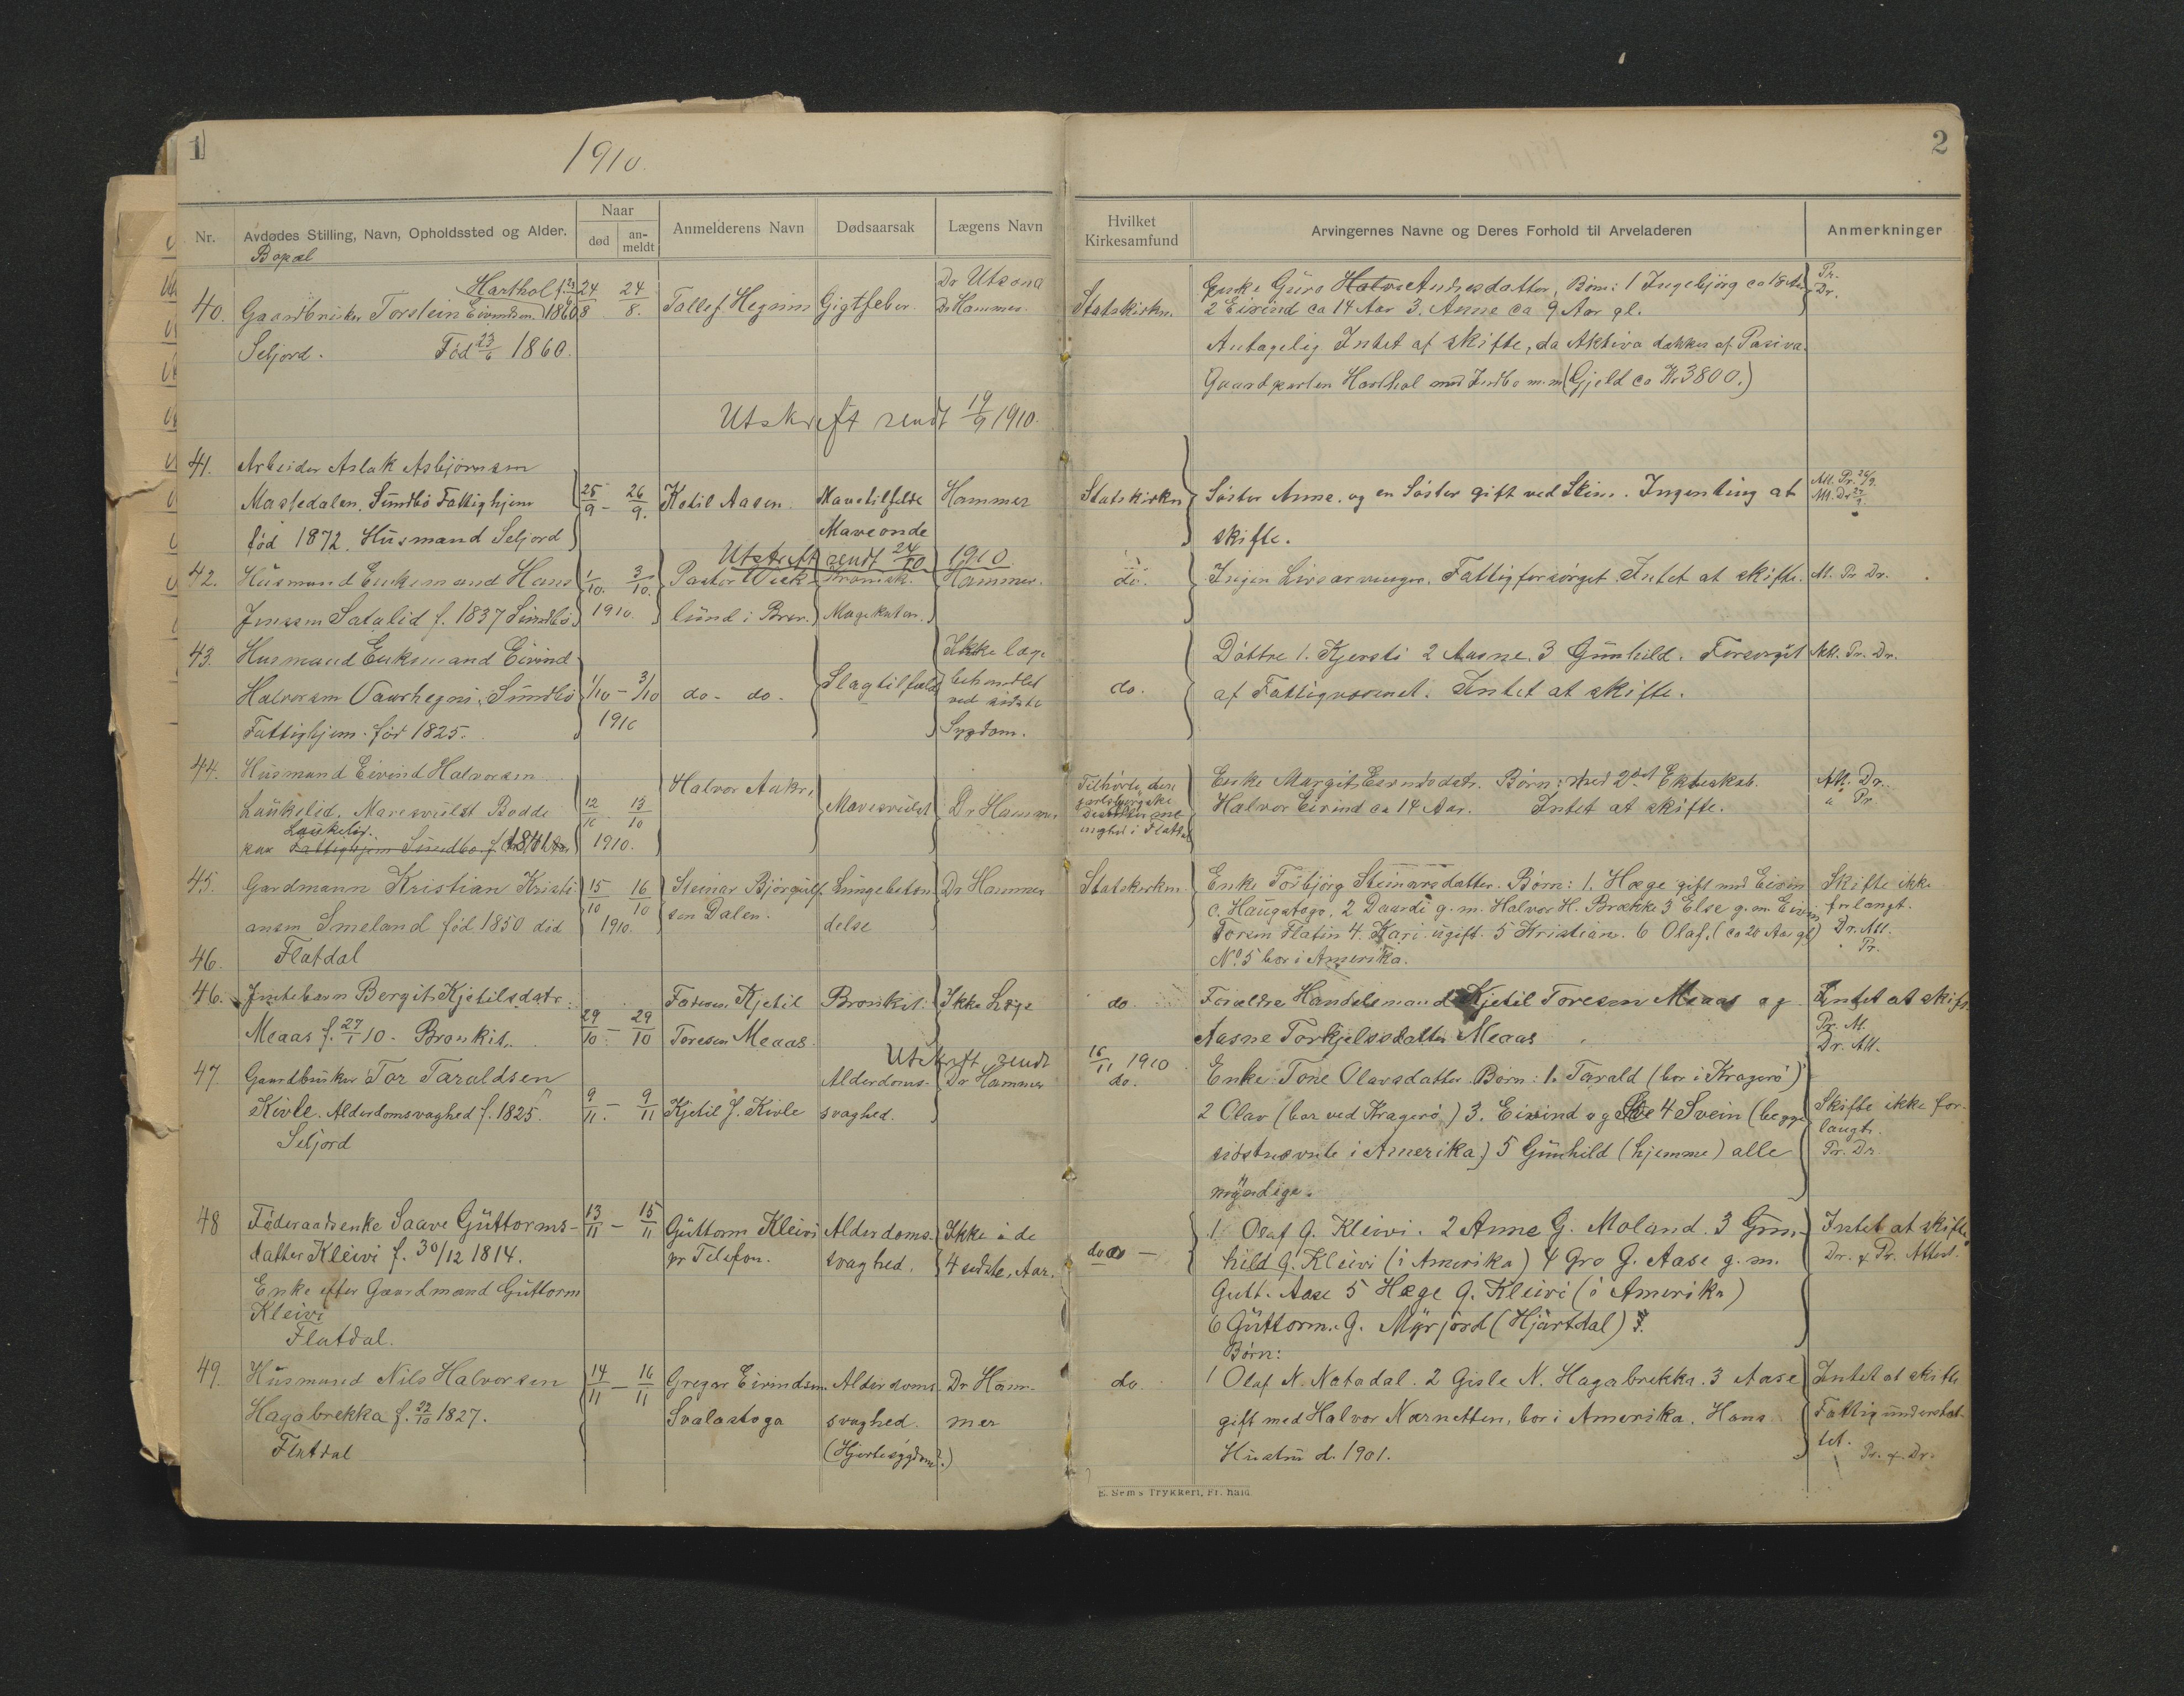 1
1910.
Nr.
Avdødes Stilling, Navn, Opholdssted og Alder.
Bopæl
Naar
død
an-
meldt
Anmelderens Navn
Dødsaarsak
Lægens Navn
40.
Harthol f. 23/6
Gaardbruker Torstein Eivindsen 1860
Seljord. Fød 23/6 1860.
24/8
24/8.
Tollef Hegnin
Gigtfeber
Dr Utsond
Dr Hammer.
Utskrift sendt 19/9 1910.
41.
Arbeider Aslak Asbjørnsen
Mastedalen, Sundbø Fattighjem
fød 1872. Husmand Seljord
25/9 - 26/9.
Ketil Aasen.
Mavetilfelde
Maveonde
Hammer
Utskrift sendt 24/10 1910
42.
Husmand Enkemand Hans
Jenssen Satalid f. 1837 Sundbø
1/10. 3/10.
1910.
Pastor Wick-
lund i Brør.
Kronisk.
Magekatar.
Hammer.
43.
Husmand Enkemand Eivind
Halvorsen Vaarhegni, Sundbø
Fattighjem. fød 1825.
1/10 - 3/10
1910
do - do -
Slagtilfæld
Ikke læge
behandlet
ved sidste
Sygdom.
44.
Husmand Eivind Halvorsen
Laukelid. Mavesvulst Bodde
Laukelid.
paa Fattighjem Sundbø f. 1841
12/10 13/10
1910.
Halvor Aukr.
Mavesvulst
Dr Hammer
45.
Gardmann Kristian Kristi-
ansen Smeland fød 1850 did
Flatdal
15/10 16/10
1910.
Steinar Bjørgulf-
sen Dalen.
Lungebeten-
delse
Dr Hammer
46.
46.
Pikebarn Bergit Kjetilsdatr.
Meaas f. 27/1 10. Bronkit.
29/10 - 29/10
Faderen Kjetil
Toresen Meaas.
Bronkit.
Ikke Læge
Utskrift sendt
47.
Gaardbruker Tor Taraldsen
Kivle. Alderdomsvaghed f. 1825.
Seljord
9/11. - 9/11
Kjetil J. Kivle
Alderdoms-
svaghed.
Dr Hammer
48
Føderaadsenke Saave Guttorms-
datter Kleivi f. 30/12 1814.
Enke efter Gaardmand Guttorm
Kleivi
Flatdal.
13/11 - 15/11
Guttorm Kleivi
pr Telefon.
Alderdoms-
svaghed.
Ikke i de
4 sidste Aar.
49.
Husmand Nils Halvorsen
Hagabrekka f. 22/10 1827.
Flatdal
14/11 - 16/11
Gregar Eivindsen
Svalastoga
Alderdoms
svaghed.
(Hjertesygdom.)
Dr Ham-
mer
2
Hvilket
Kirkesamfund
Arvingernes Navne og Deres Forhold til Arveladeren
Anmerkninger
Statskirkn.
Enke Guro Halvo Andresdatter, Børn: 1 Ingebjørg ca 18 Aar
2 Eivind ca 14 Aar 3. Anne ca 9 Aar gl.
Antagelig Intet at skifte, da Aktiva dækkes af Pasiva.
Gaardparten Harthol med Indbo m.m (Gjeld ca Kr 3800.)
Pr.
Dr.
Statskirkn
Søster Anne. og en Søster gift ved Skien. Ingenting at
skifte.
Att. Pr. 26/9.
Att. Dr 27/9.
do.
Ingen Livsarvinger. Fattigforsørget. Intet at skifte.
At. Pr Dr.
do.
Døttre 1. Kjersti 2 Aasne. 3 Gunhild. Forsørget
af Fattigvæsenet. Intet at skifte.
Att. Pr. Dr.
Tilhørte den
menighet i Flatdal
Enke Margit Eivindsdatr. Børn: Med 2det Ekteskab.
Halvor Eivind ca 14 Aar. Intet at skifte.
Att. Dr.
" Pr.
Statskirken
Enke Torbjørg Steinarsdatter. Børn: 1. Hæge gift med Eivin
O. Haugatoga, 2 Daardi g. m. Halvor H. Brække 3 Else g. m. Eivin
Toresn Flatin 4. Kari ugift. 5 Kristian. 6 Olaf. (ca 20 Aar gl)
No. 5 bor i Amerika.
Skifte ikke
forlangt.
Dr. Att.
" Pr.
do
Forældre Handelsmand Kjetil Toresen Meaas og
Aasne Torkjelsdatter Meaas
Intet at skift
Pr. At.
Dr. Att.
16/11 1910
do.
Enke Tone Olavsdatter Børn: 1. Tarald (bor i Kragerø)
2 Olav (bor ved Kragerø) 3. Eivind og 4 Svein (begge
sidstnevnte i Amerika) 5 Gunhild (hjemme) alle
myndige.
Skifte ikke for-
langt.
Pr. Dr.
do
1. Olaf G. Kleivi. 2 Anne G. Moland. 3 Gun-
hild G. Kleivi (i Amerika) 4 Gro G. Aase g. m.
Gutt. Aase 5 Hæge G. Kleivi (i Amerika)
6 Guttorm. G. Myrjord (Hjartdal)
Intet at skifte
Dr. & Pr. Attest.
do.
Børn:
1 Olaf N. Natadal. 2 Gisle N. Hagabrekka. 3 Aase
gift med Halvor Nærnetten, bor i Amerika. Hans
Hustru d. 1901.
Intet at skifte
Fattigunderstøt-
tet.
Pr. & Dr.
E. Sem's Trykkeri, Fr.hald